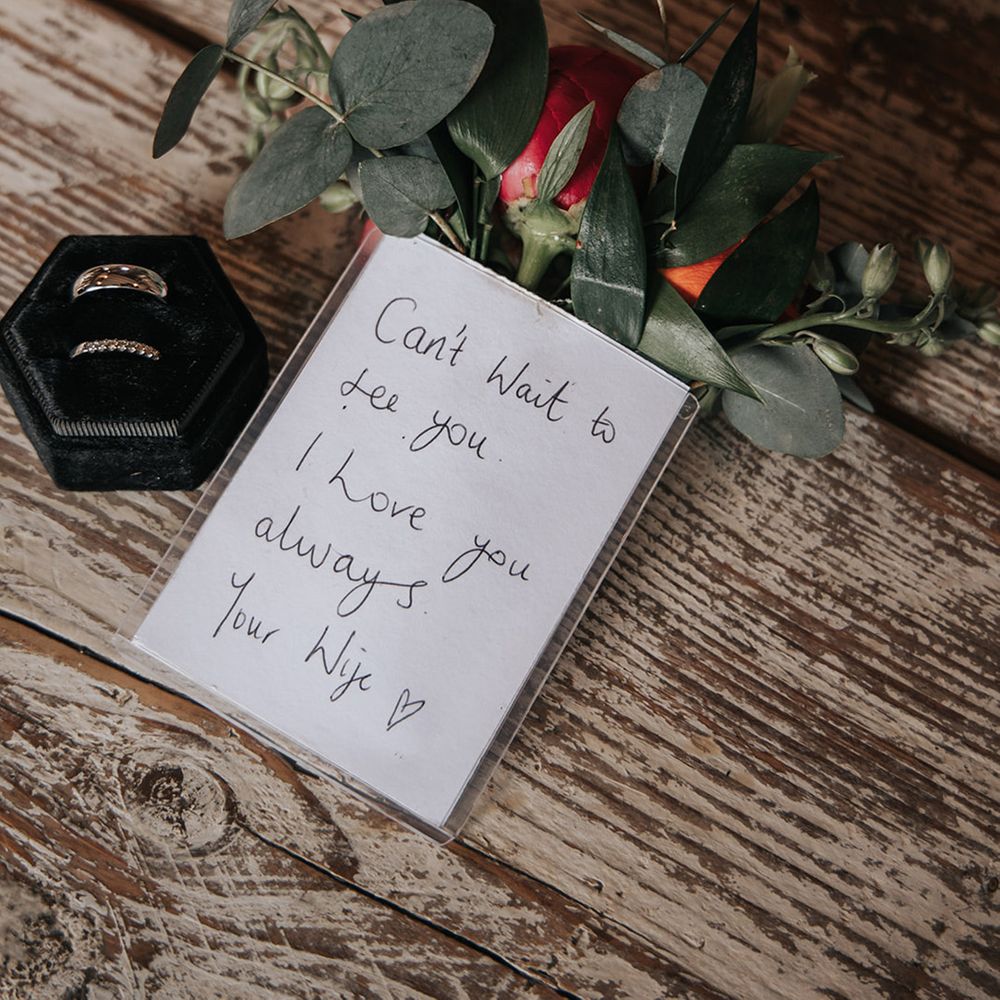 Can't Wait to
see you.
I Love you
always.
Your Wife ♡